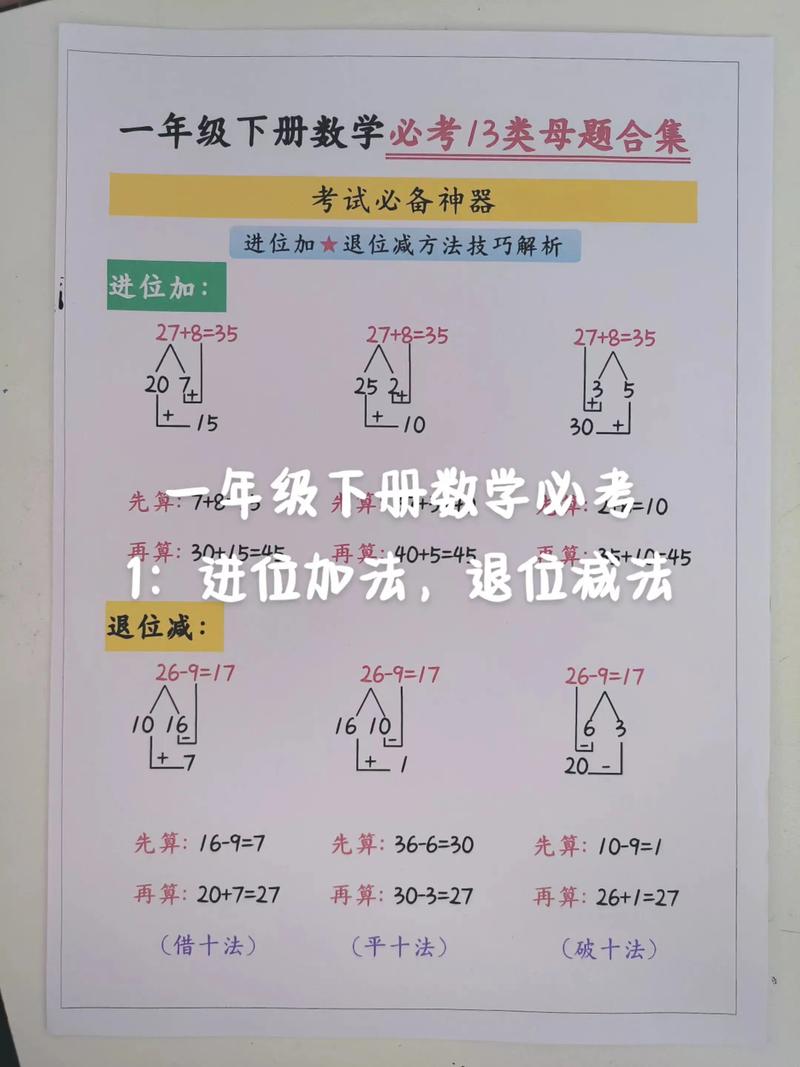 一年级下册数学必考13类母题合集
考试必备神器
进位加★退位减方法技巧解析
进位加：
27+8=35 27+8=35 27+8=35
20 7 25 2 3 5
+ + +
+ 15 + 10 30 +
一年级下册数学必考
先算: 先算: =10
再算: 30+15=45 再算: 40+5=45 再算: 35+10=45
1：进位加法，退位减法
退位减：
26-9=17 26-9=17 26-9=17
10 16 16 10 6 3
- - -
+ 7 + 1 20 -
先算: 16-9=7 先算: 36-6=30 先算: 10-9=1
再算: 20+7=27 再算: 30-3=27 再算: 26+1=27
(借十法) (平十法) (破十法)